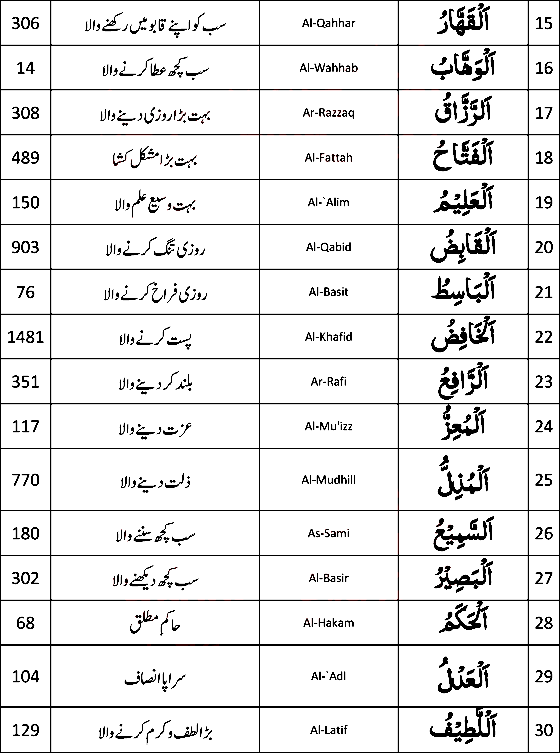 15 اَلْقَهَّارُ Al-Qahhar سب کو اپنے قابو میں رکھنے والا 306
16 اَلْوَهَّابُ Al-Wahhab سب کچھ عطا کرنے والا 14
17 اَلرَّزَّاقُ Ar-Razzaq بہت بڑا روزی دینے والا 308
18 اَلْفَتَّاحُ Al-Fattah بہت بڑا مشکل کشا 489
19 اَلْعَلِيْمُ Al-`Alim بہت وسیع علم والا 150
20 اَلْقَابِضُ Al-Qabid روزی تنگ کرنے والا 903
21 اَلْبَاسِطُ Al-Basit روزی فراخ کرنے والا 76
22 اَلْخَافِضُ Al-Khafid پست کرنے والا 1481
23 اَلرَّافِعُ Ar-Rafi بلند کر دینے والا 351
24 اَلْمُعِزُّ Al-Mu'izz عزت دینے والا 117
25 اَلْمُذِلُّ Al-Mudhill ذلت دینے والا 770
26 اَلسَّمِيْعُ As-Sami سب کچھ سننے والا 180
27 اَلْبَصِيْرُ Al-Basir سب کچھ دیکھنے والا 302
28 اَلْحَكَمُ Al-Hakam حاکم مطلق 68
29 اَلْعَدْلُ Al-`Adl سراپا انصاف 104
30 اَللَّطِيْفُ Al-Latif بڑا لطف و کرم کرنے والا 129